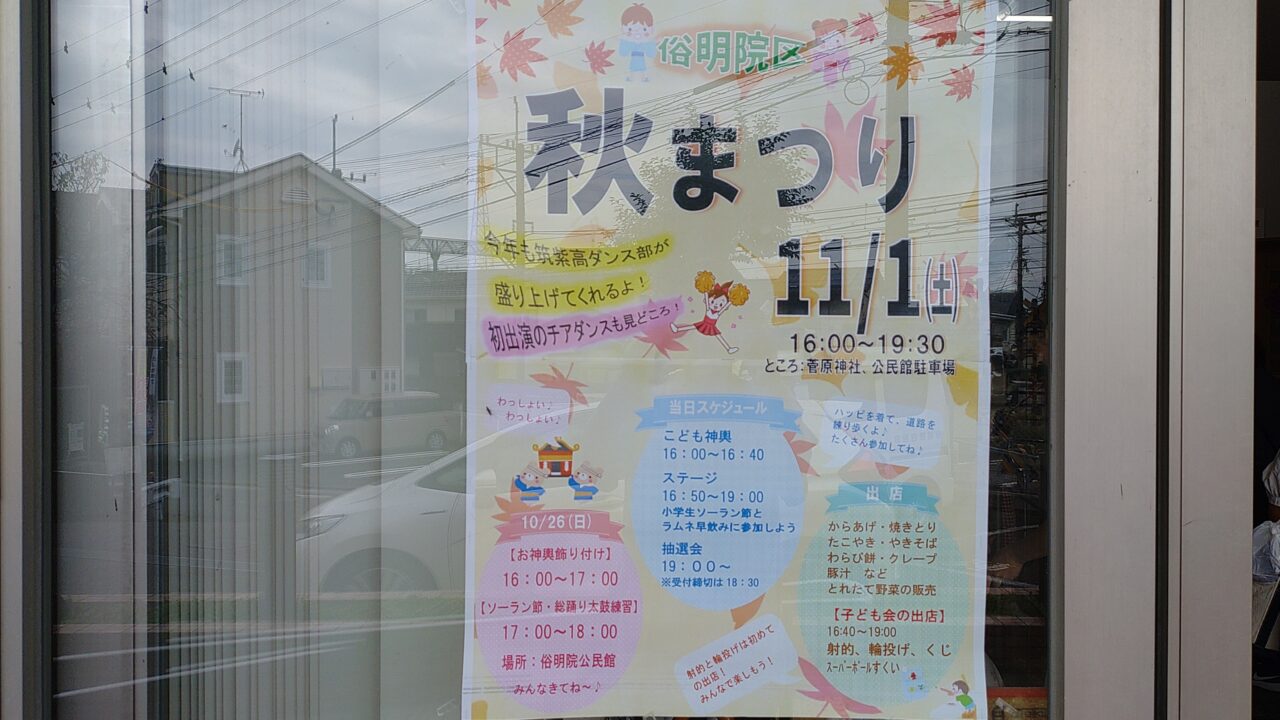 俗明院区
秋まつり
11/1(土)
16:00~19:30
ところ：菅原神社、公民館駐車場
今年も筑紫高ダンス部が
盛り上げてくれるよ！
初出演のチアダンスも見どころ！
わっしょい♪
わっしょい♪
10/26(日)
【お神輿飾り付け】
16：00～17：00
【ソーラン節・総踊り太鼓練習】
17：00～18：00
場所：俗明院公民館
みんなきてね～♪
当日スケジュール
こども神輿
16：00～16：40
ステージ
16：50～19：00
小学生ソーラン節と
ラムネ早飲みに参加しよう
抽選会
19：00～
※受付締切は18：30
ハッピを着て、道路を
練り歩くよ♪
たくさん参加してね♪
出店
からあげ・焼きとり
たこやき・やきそば
わらび餅・クレープ
豚汁　など
とれたて野菜の販売
【子ども会の出店】
16:40～19:00
射的、輪投げ、くじ
スーパーボールすくい
射的と輪投げは初めて
の出店！
みんなで楽しもう！